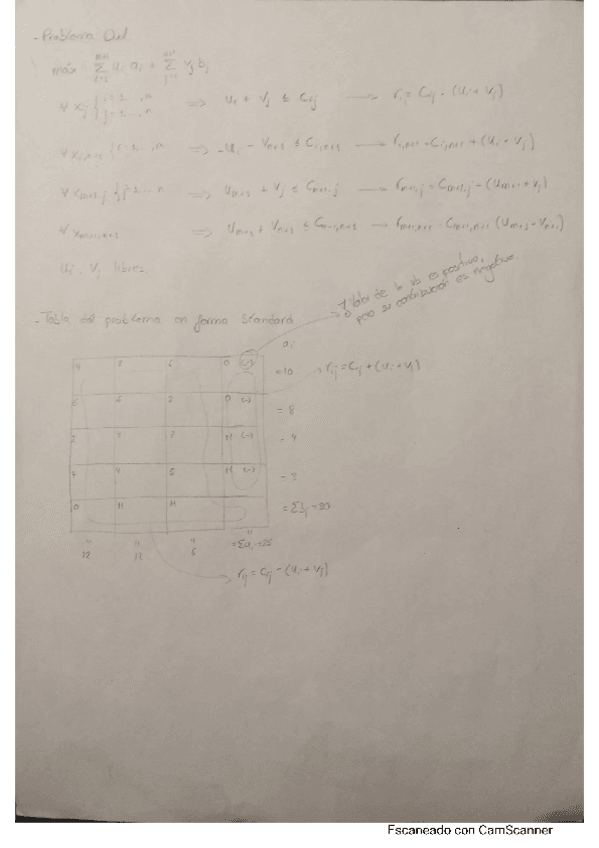 - Problema Dual
máx Σ ui ai + Σ vj bj
∀ xij { i=1..., n j=1..., n => ui + vj ≤ cij → rij = cij - (ui + vj)
∀ xi,n+1 { i=1..., n => -ui - vn+1 ≤ ci,n+1 → ri,n+1 = ci,n+1 + (ui + vj)
∀ xm+1,j { j=1... n => um+1 + vj ≤ cm+1,j → rm+1,j = cm+1,j - (um+1 + vj)
∀ xm+1,n+1 => um+1 + vn+1 ≤ cm+1,n+1 → rm+1,n+1 = cm+1,n+1 (um+1 - vn+1)
ui, vj libres.
- Tabla del problema en forma standard
de la vb es positivo,
pero su contribución es negativa
ai
4 6 0 (-) = 10 → rij = cij + (ui + vj)
0 (-) = 8
2 M (-) = 4
M (-)
0 M M = Σbj = 30
12 12 6 = Σai = 25
→ rij = cij - (ui + vj)
Escaneado con CamScanner